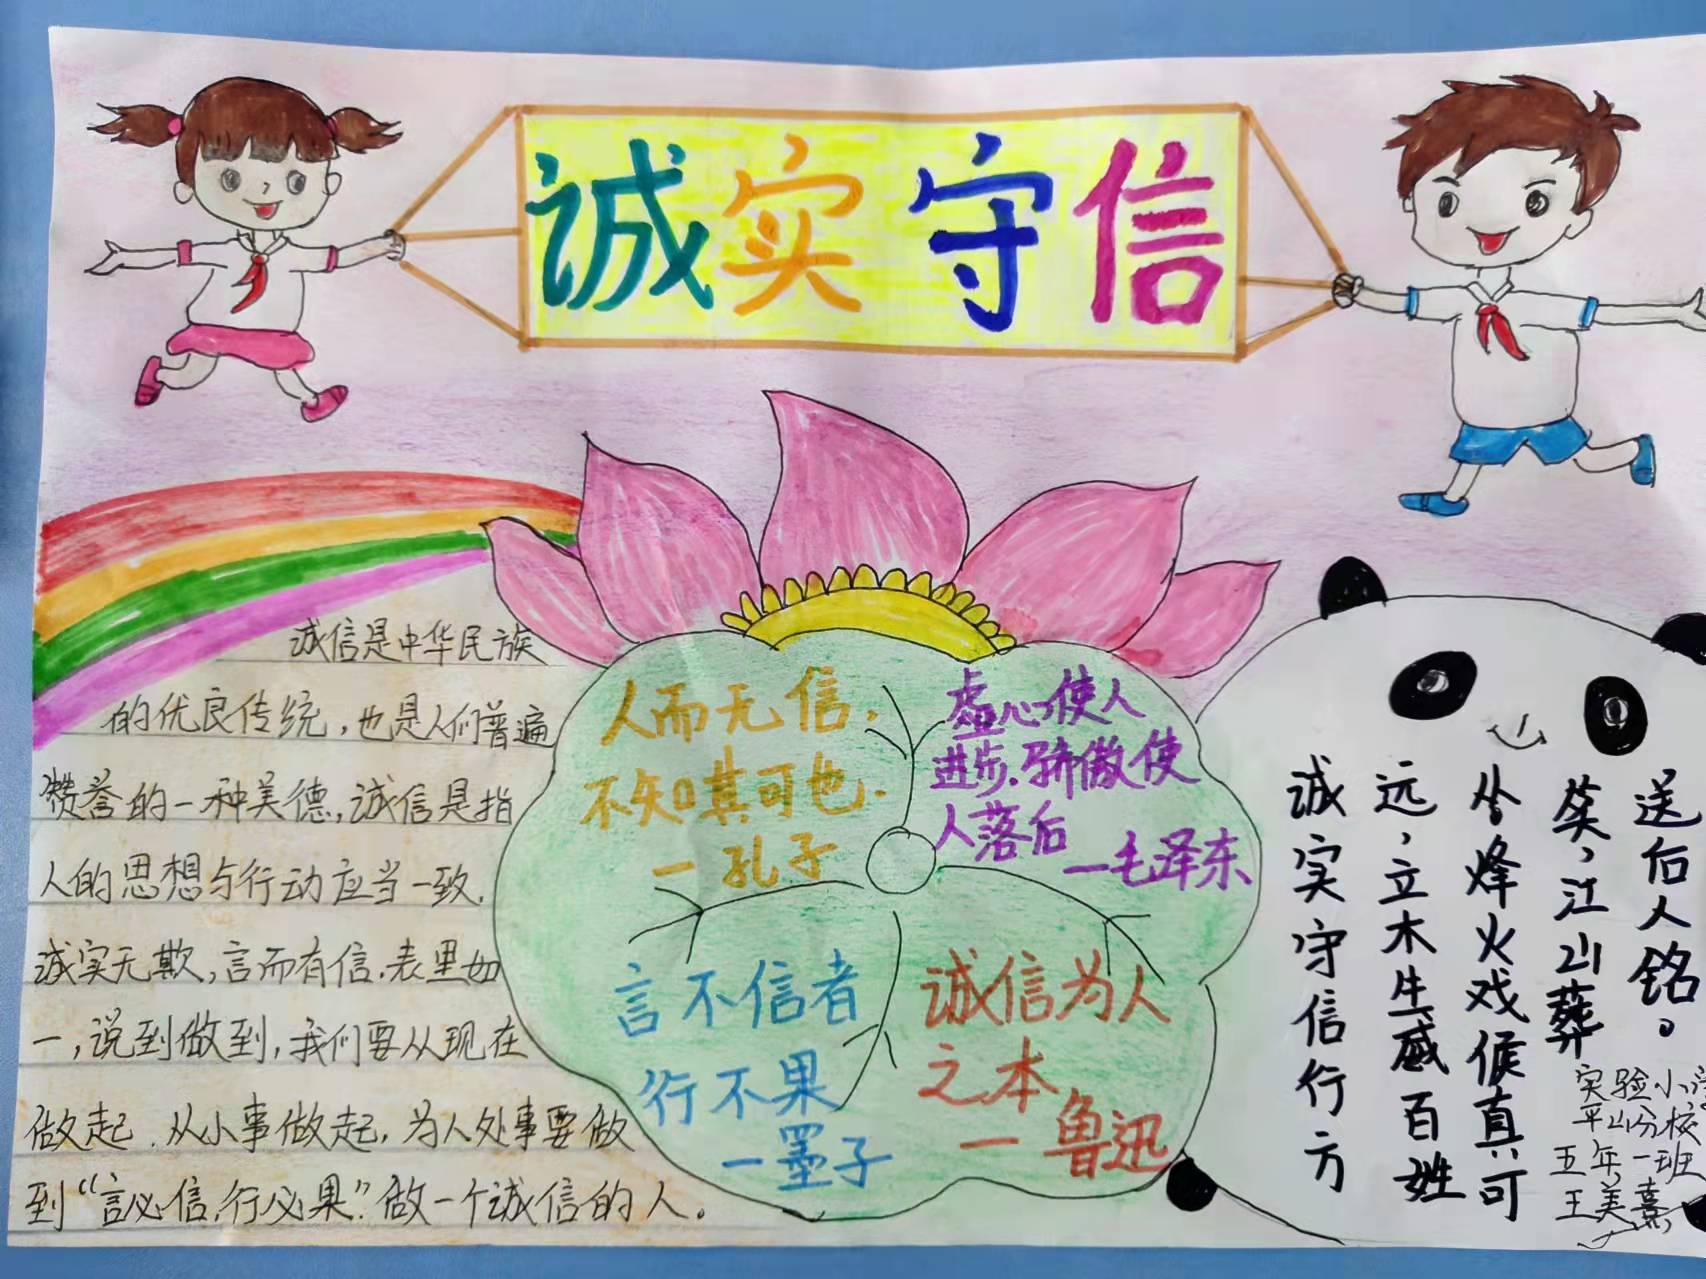 诚实守信
诚信是中华民族
的优良传统，也是人们普遍
赞誉的一种美德，诚信是指
人的思想与行动应当一致.
诚实无欺，言而有信.表里如
一，说到做到，我们要从现在
做起.从小事做起，为人处事要做
到“言必信，行必果”.做一个诚信的人。
人而无信.
不知其可也.
一孔子
虚心使人
进步.骄傲使
人落后
一毛泽东
言不信者
行不果
一墨子
诚信为人
之本
一鲁迅
诚实守信行方
远，立木生威百姓
从烽火戏候真可
笑，江山葬
送后人铭。
实验小学
平山分校
五年一班
王美熹